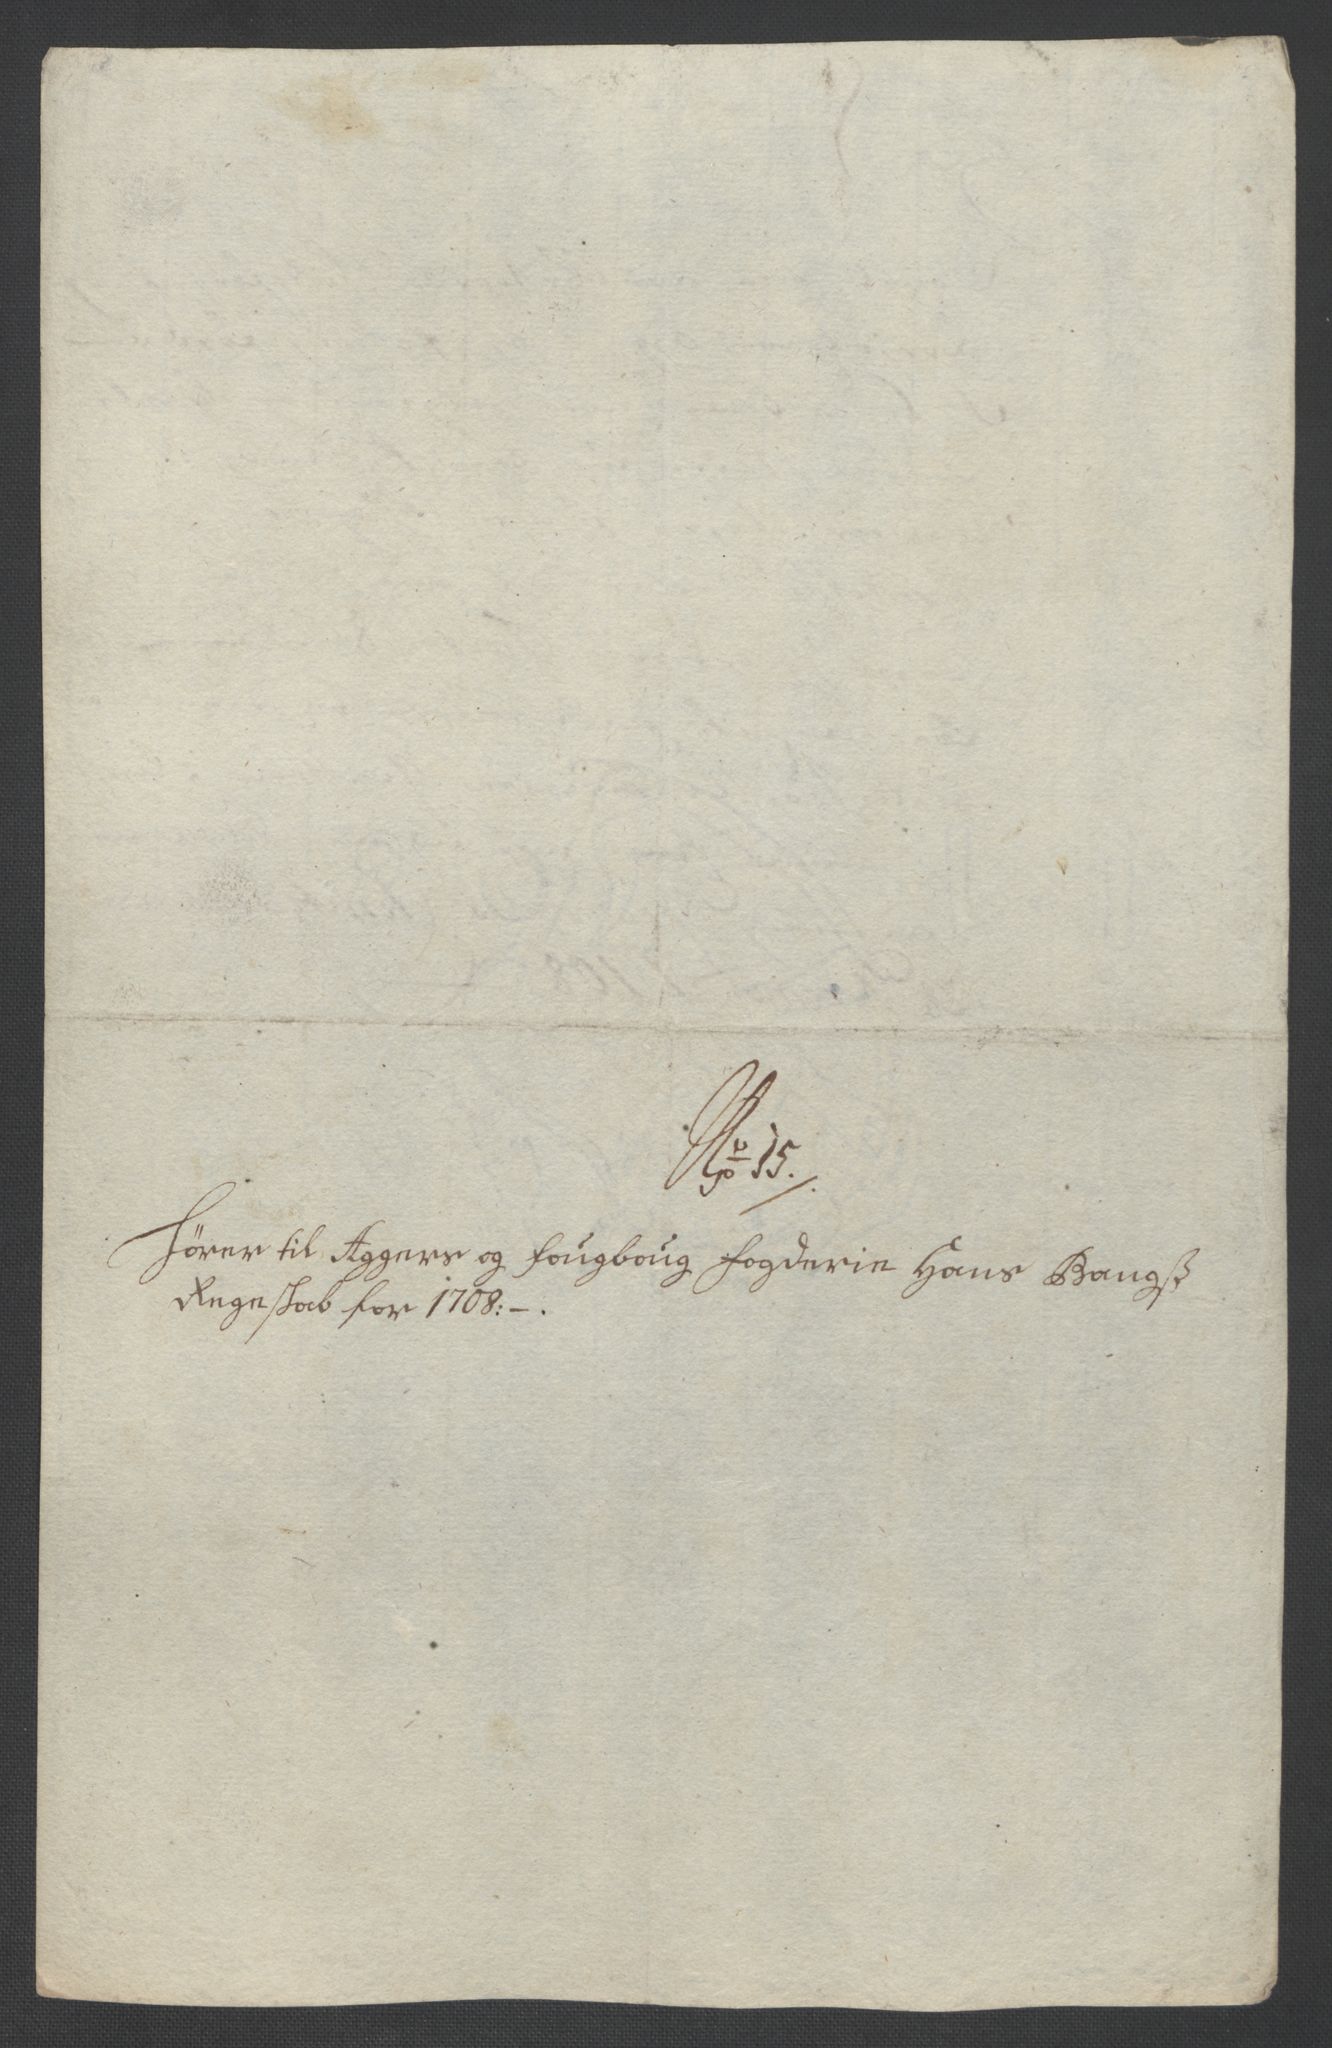 No 15.
Hörer til Aggers og fougboug fogderie Hans Bangß
Regeskab for 1708:-.